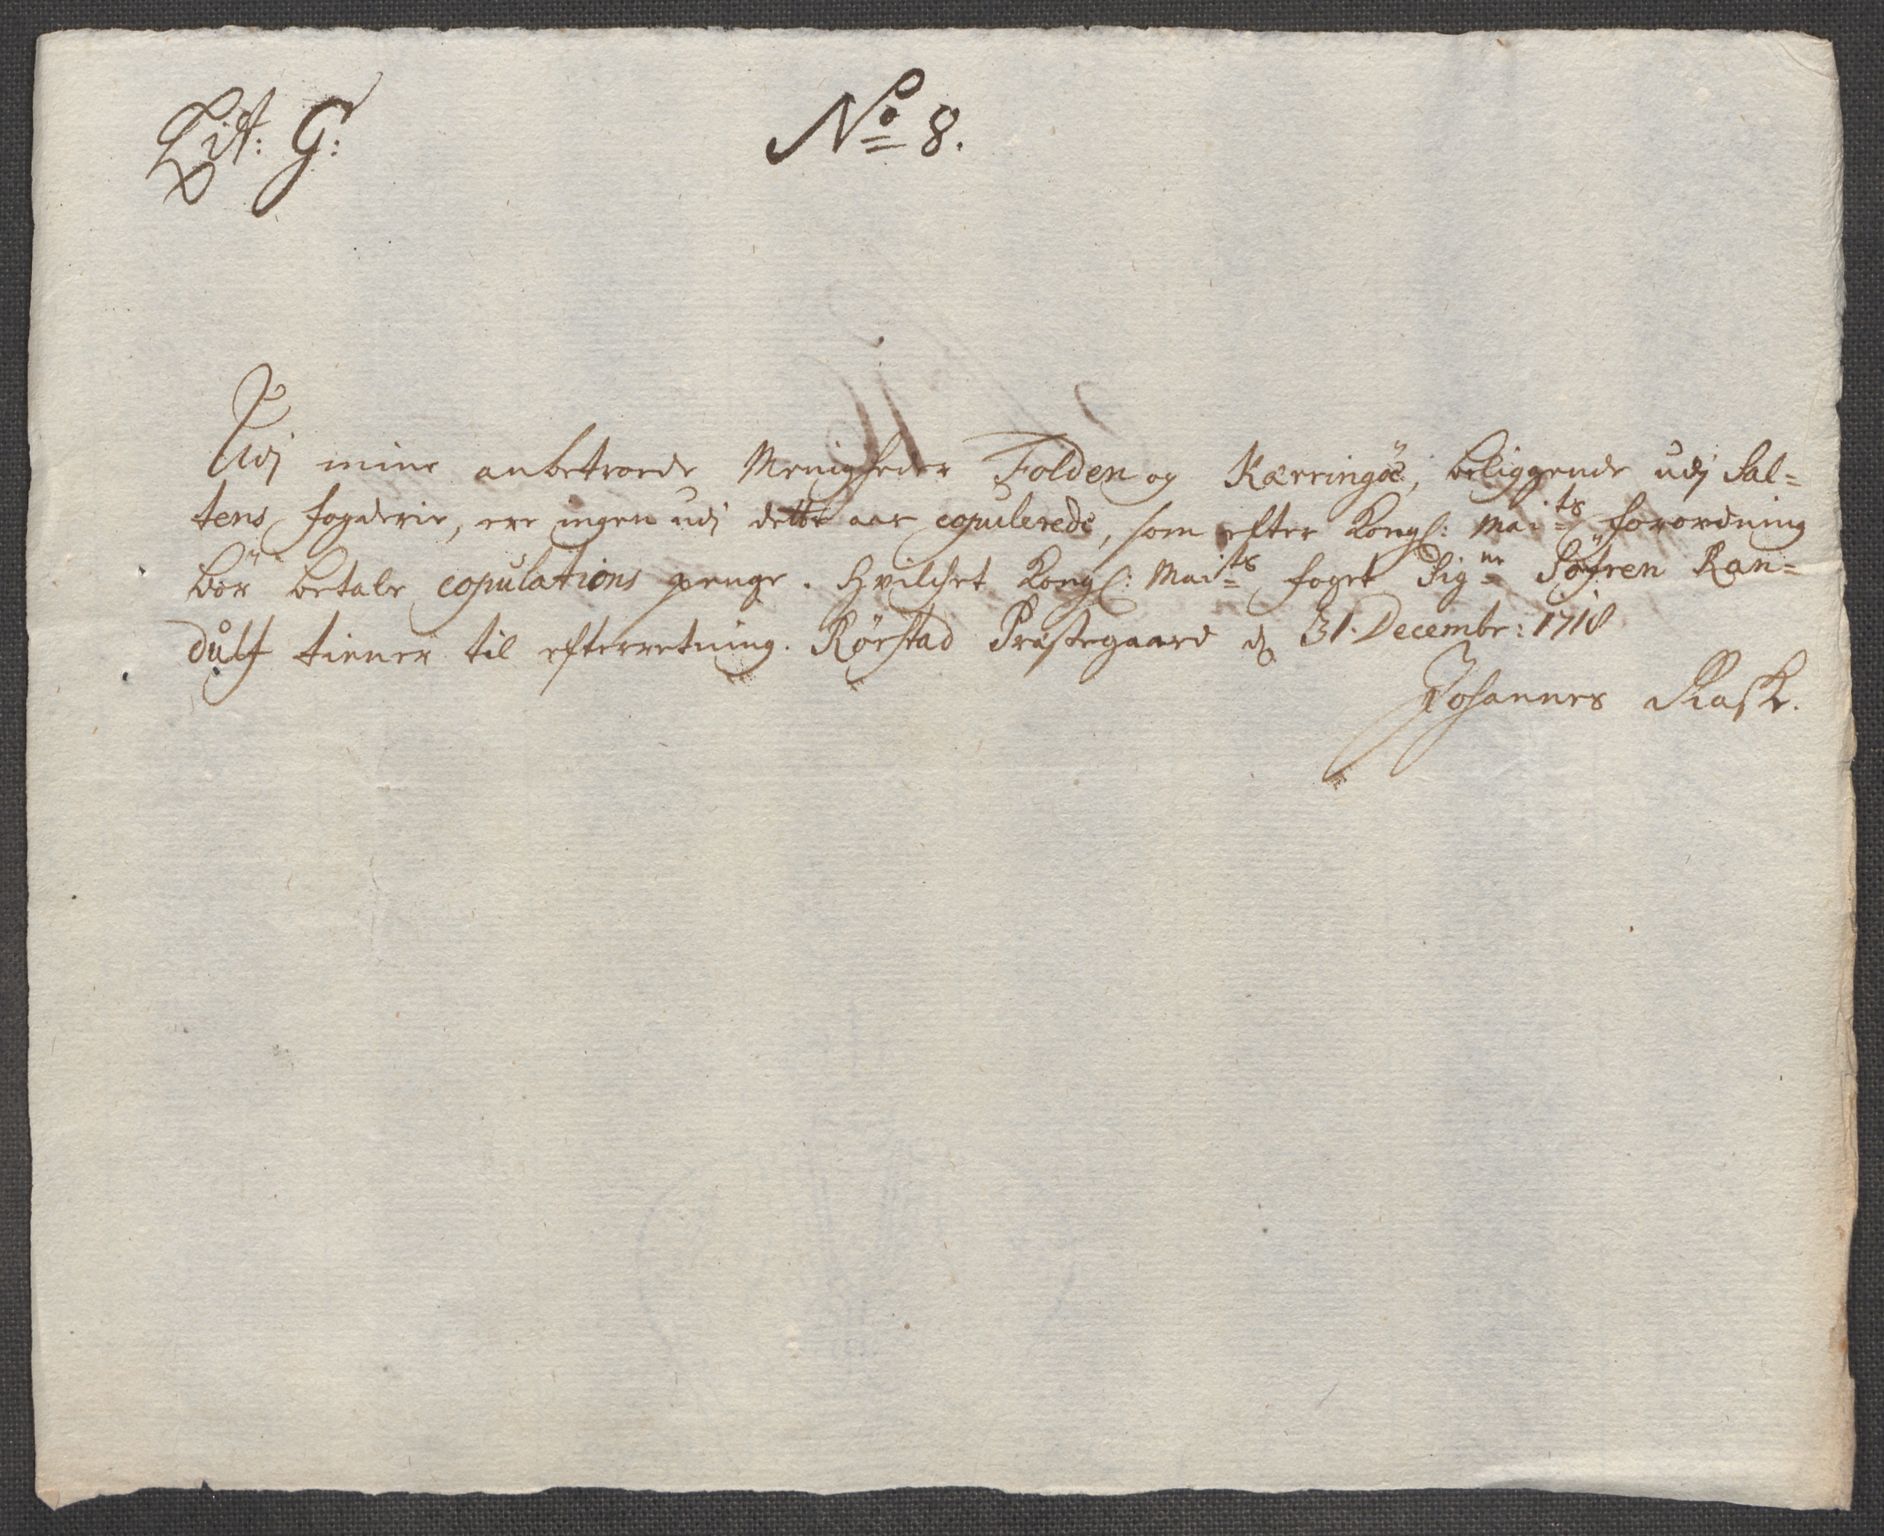 Lit: G: No 8.
Udj mine anbetroede Menigheder Folden og Kærringöe, beliggende udj Sal=
tens fogderie, ere ingen udj dette aar copulerede, som efter Kongl: Maits forordning
bör betale copulations penge. Hvilchet Kongl: Maits foget Signr Söfren Ran=
dulf tiener til efterretning. Rörstad Præstegaard d 31. Decembr: 1718
Johannes Rask.